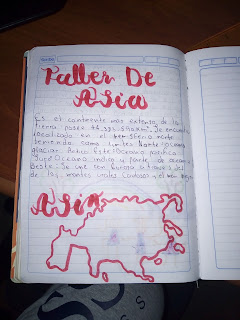 Taller De
Asia
Es el continente más extenso de la
tierra posee 44.
localizado en el hemisferio norte
teniendo como limites Norte: Oceano
glacial Artico Este: Oceano pacifico
Sur: Oceano indico y parte de oceano
Oeste: Se une con Europa a traves del
de los montes urales Caucaso y el mar
Asia